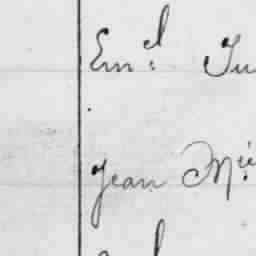 Em.d Tu
Jean Mi